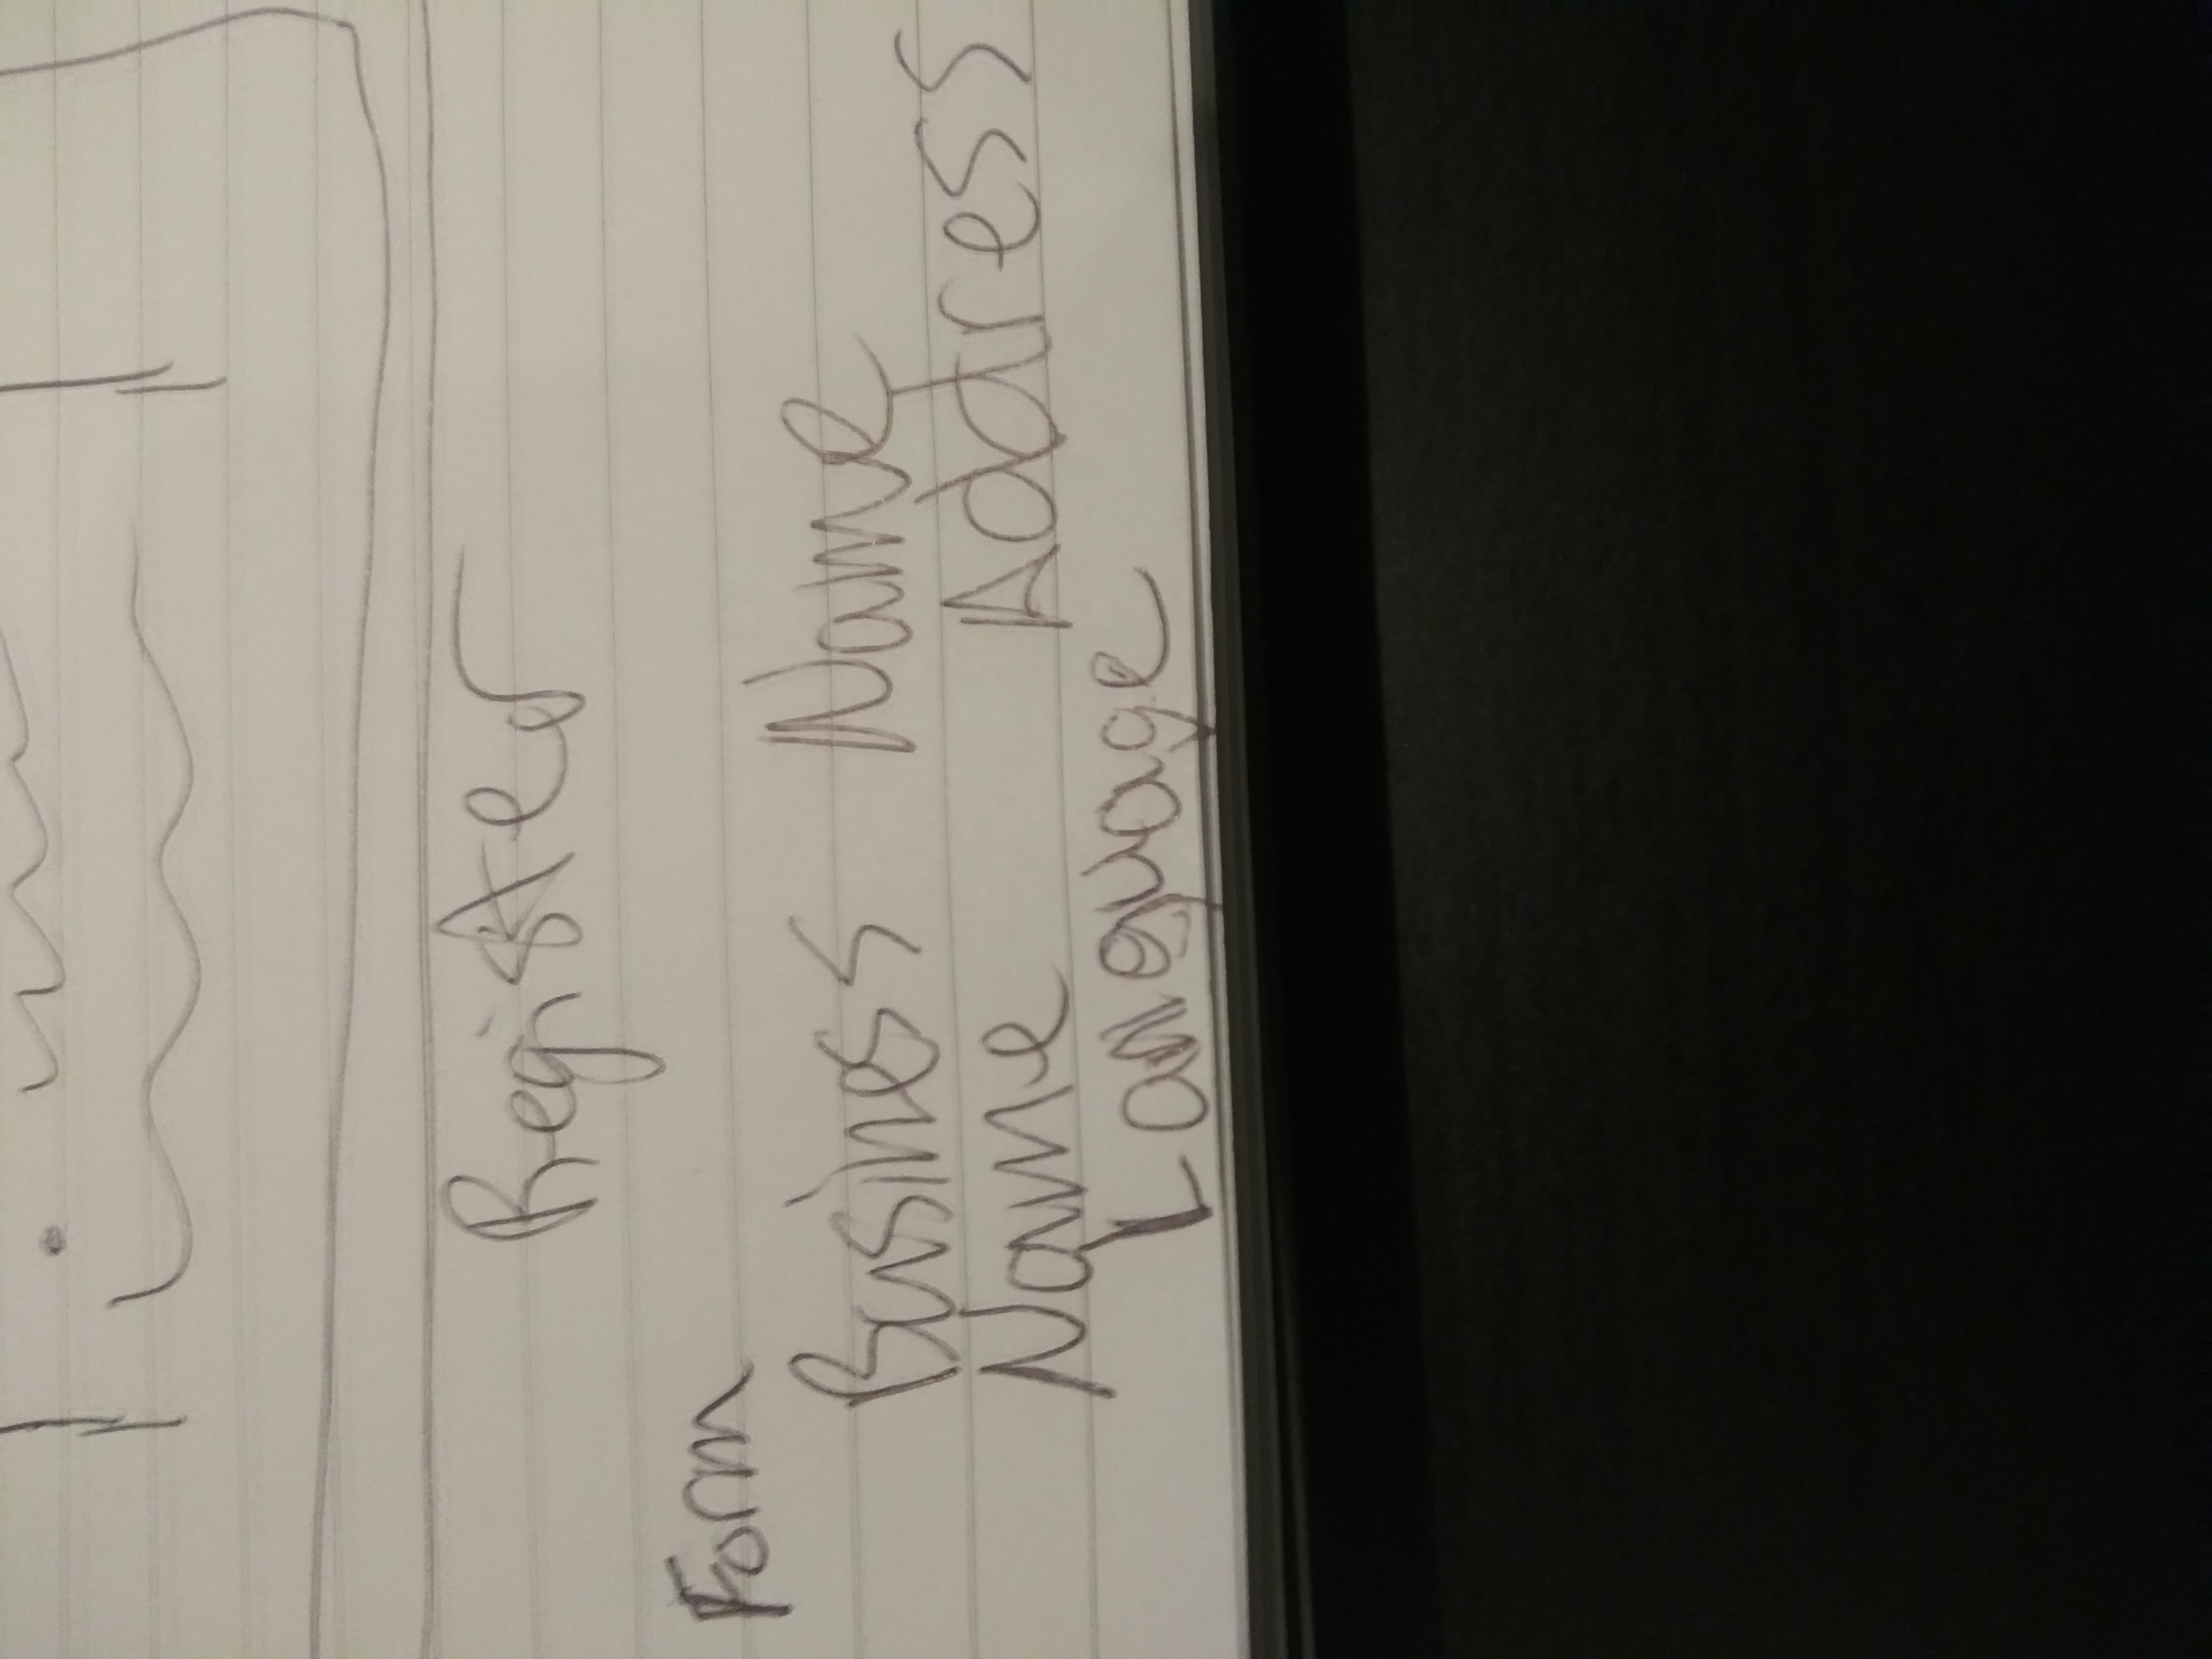 Register
Form
Business Name
Name Address
Language